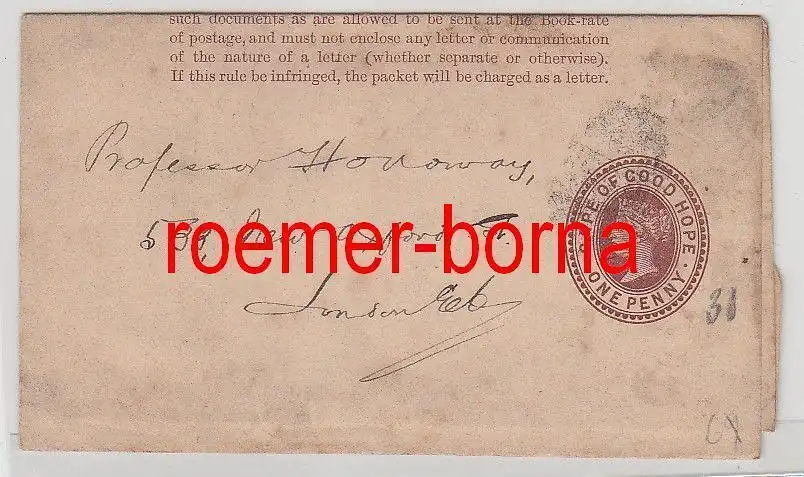 such documents as are allowed to be sent at the Book-rate
of postage, and must not enclose any letter or communication
of the nature of a letter (whether separate or otherwise).
If this rule be infringed, the packet will be charged as a letter.
Professor Holloway,
533, New Oxford St.
London
CAPE OF GOOD HOPE.
ONE PENNY.
roemer-borna